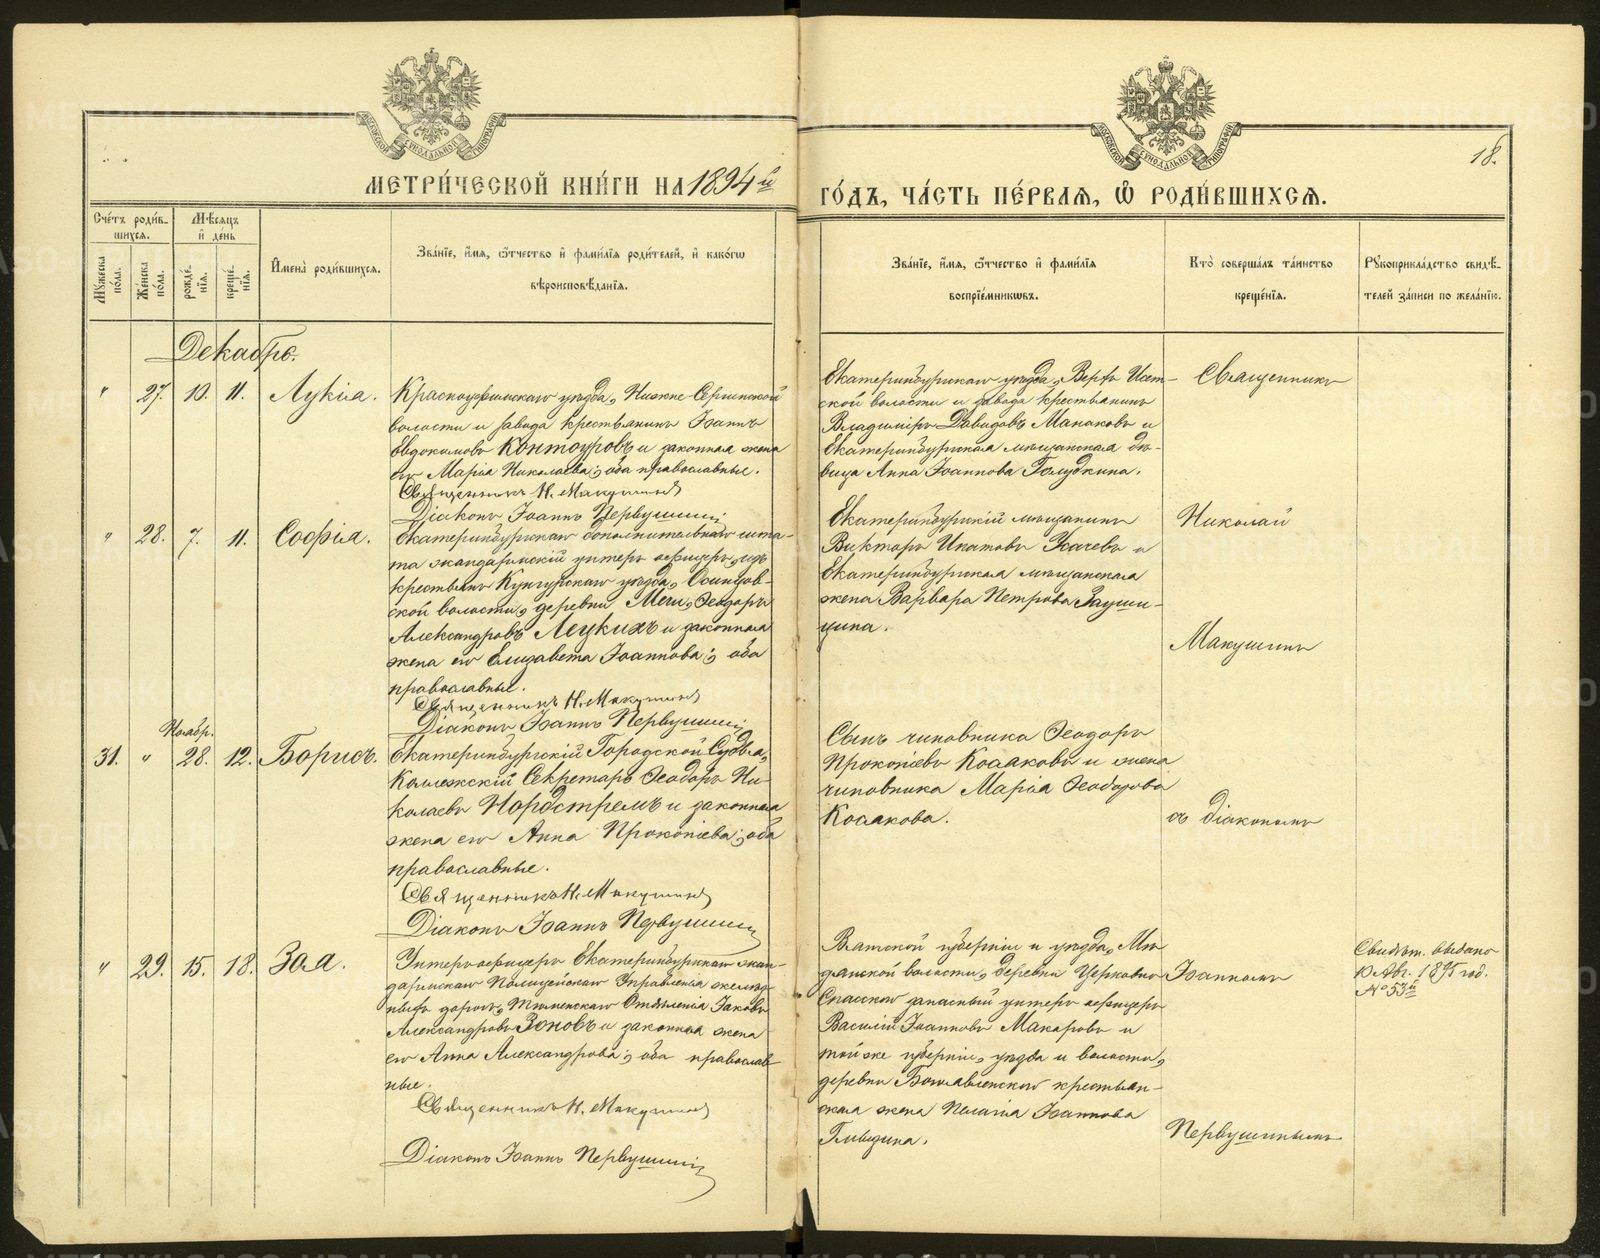 МЕТРИ́ЧЕСКОЙ КНИ́ГИ НА 1894й
ГО́ДЪ, ЧА́СТЬ ПЕ́РВАЯ, Ѡ҆ РОДИ́ВШИХСЯ.
18.
Сче́тъ роди́в-
шихся.
Мѣ́сяцъ
и҆ де́нь
Му́жеска по́ла.
Же́нска по́ла.
рожде́-
нїя.
креще́-
нїя.
И҆мена̀ роди́вшихся.
Зва́нїе, и҆́мя, ѻ҆́тчество и҆ фами́лїя роди́телей, и҆ како́гѡ
вѣроисповѣ́данїя.
Зва́нїе, и҆́мя, ѻ҆́тчество и҆ фами́лїя
воспрїе́мникѡвъ.
Кто̀ соверша́лъ та́инство
креще́нїя.
Рꙋкоприкла́дство свидѣ́-
телей за́писи по жела́нїю.
Декабрь.
" 27. 10. 11. Лукіа.
Красноуфимскаго уѣзда, Нижне Сергинской
волости и завода крестьянинъ Іоаннъ
Евдокимовъ Контоуровъ и законная жена
его Марія Николаева; оба православные.
Священникъ Н. Макушинъ
Діаконъ Іоаннъ Первушинъ
Екатеринбургскаго уѣзда, Верхъ Исет-
ской волости и завода крестьянинъ
Владиміръ Давидовъ Манаковъ и
Екатеринбургская мѣщанская дѣ-
вица Анна Іоаннова Голудкина.
Священникъ
" 28. 7. 11. Софія.
Екатеринбургскаго дополнительнаго шта-
та жандармскій унтеръ офицеръ, изъ
крестьянъ Кунгурскаго уѣзда, Осинцов-
ской волости, деревни Мечи, Ѳеодоръ
Александровъ Легкихъ и законная
жена его Елизавета Іоаннова; оба
православные.
Священникъ Н. Макушинъ
Діаконъ Іоаннъ Первушинъ
Екатеринбургскій мѣщанинъ
Викторъ Игнатовъ Ткачевъ и
Екатеринбургская мѣщанская
жена Варвара Петрова
Николай
Макушинъ
Ноябр.
31. " 28. 12. Борисъ.
Екатеринбургскій Городской Судья,
Коллежскій Секретарь Ѳеодоръ Ни-
колаевъ Нордстремъ и законная
жена его Анна Прокопіева; оба
православные.
Священникъ Н. Макушинъ
Діаконъ Іоаннъ Первушинъ
Сынъ чиновника Ѳеодоръ
Прокопіевъ Косаковъ и жена
чиновника Марія Ѳеодорова
Косакова.
съ діакономъ
" 29. 15. 18. Зоя.
Унтеръ офицеръ Екатеринбургскаго жан-
дармскаго Полицейскаго Управленія желѣз-
ныхъ дорогъ, Тюменскаго Отдѣленія Іаковъ
Александровъ Зоновъ и законная жена
его Анна Александрова; оба православ-
ные.
Священникъ Н. Макушинъ
Діаконъ Іоаннъ Первушинъ
Вятской губерніи и уѣзда,
волости, деревни Церковно
Спасской запасный унтеръ офицеръ
Василій Іоанновъ Макаровъ и
той же губерніи, уѣзда и волости,
деревни крестьян-
ская жена Пелагія Іоаннова
Іоанномъ
Первушинымъ
Свидѣт. выдано
10 Авг. 1895 год.
№ 53й